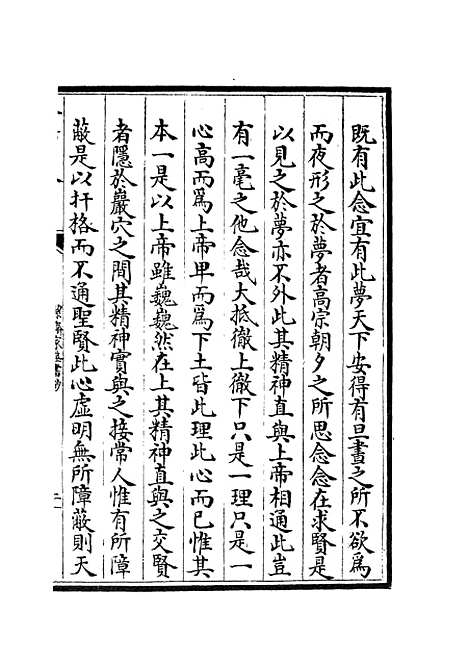 既有此念宜有此夢天下安得有旦晝之所不欲爲
而夜形之於夢者高宗朝夕之所思念念在求賢是
以見之於夢亦不外此其精神直與上帝相通此豈
有一毫之他念哉大抵徹上徹下只是一理只是一
心高而爲上帝卑而爲下土皆此理此心而已惟其
本一是以上帝雖巍巍然在上其精神直與之交賢
者隱於巖穴之間其精神實與之接常人惟有所障
蔽是以扞格而不通聖賢此心虛明無所障蔽則天
絜齋家塾書鈔